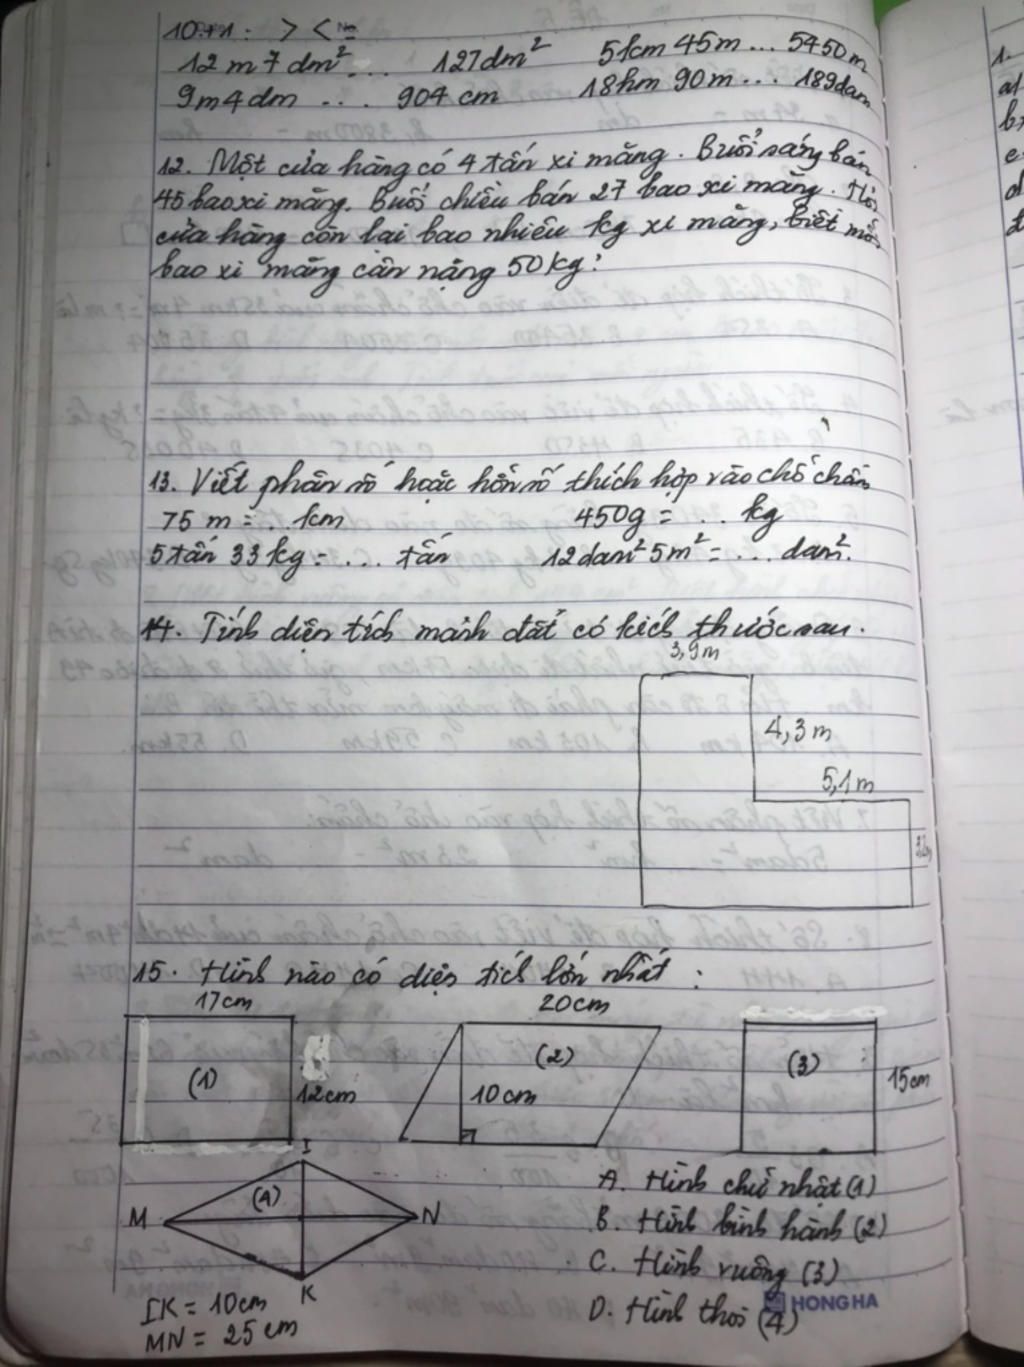 > < =
12 m 7 dm² ... 127 dm² 5km 45m ... 5450m
9m4dm ... 904 cm 18hm 90m ... 189dam
12. Một cửa hàng có 4 tấn xi măng. Buổi sáng bán
45 bao xi măng. Buổi chiều bán 27 bao xi măng. Hỏi
cửa hàng còn lại bao nhiêu kg xi măng, biết mỗi
bao xi măng cân nặng 50kg?
13. Viết phân số hoặc hỗn số thích hợp vào chỗ chấm
75 m = ... km 450g = ... kg
5 tấn 33 kg = ... tấn 12dam² 5m² = ... dam².
14. Tính diện tích mảnh đất có kích thước sau.
3,9m
4,3m
5,1m
15. Hình nào có diện tích lớn nhất :
17cm 20cm
(1) 12cm (2) 10cm (3) 15cm
I
M (4) N
K
IK = 10cm
MN = 25 cm
A. Hình chữ nhật (1)
B. Hình bình hành (2)
C. Hình vuông (3)
D. Hình thoi (4)
HONG HA